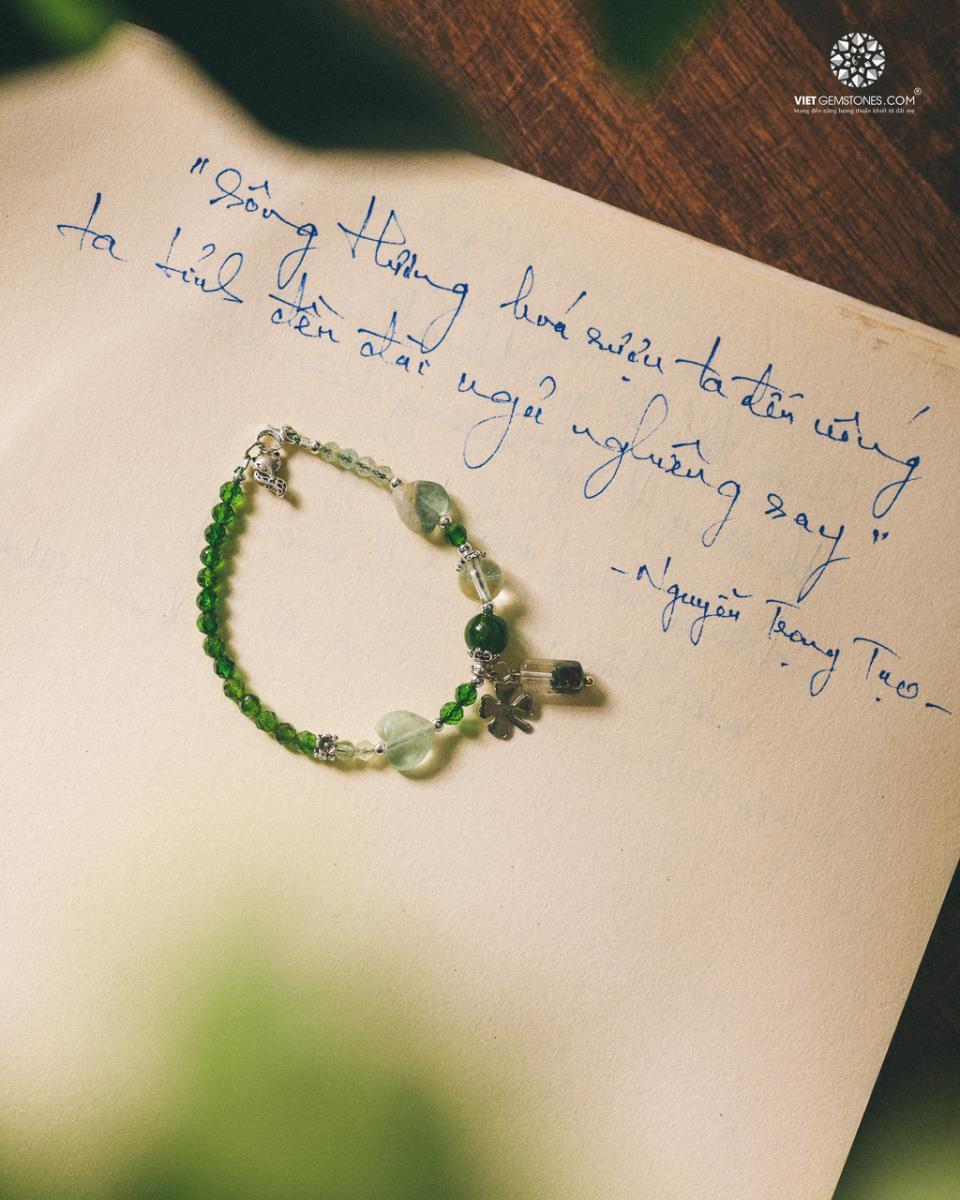 VIETGEMSTONES.COM®
Mang đến năng lượng thuần khiết từ đất mẹ
"Sông Hương hoá rượu ta đến uống
ta tỉnh đền đài ngả nghiêng say"
-Nguyễn Trọng Tạo-